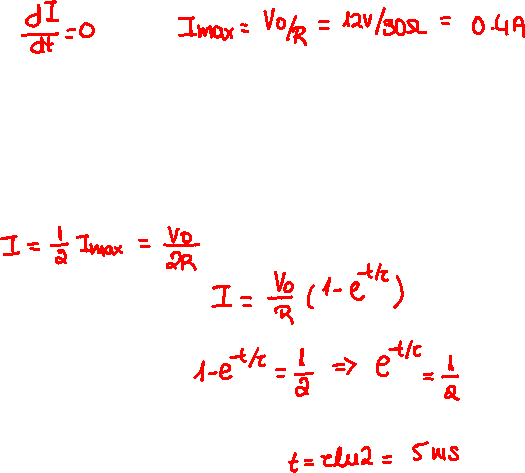 dI/dt = 0 Imax = V0/R = 12V/30Ω = 0.4A
I = 1/2 Imax = V0/2R
I = V0/R (1 - e^(-t/τ))
1 - e^(-t/τ) = 1/2 => e^(-t/τ) = 1/2
t = τ ln2 = 5 ms